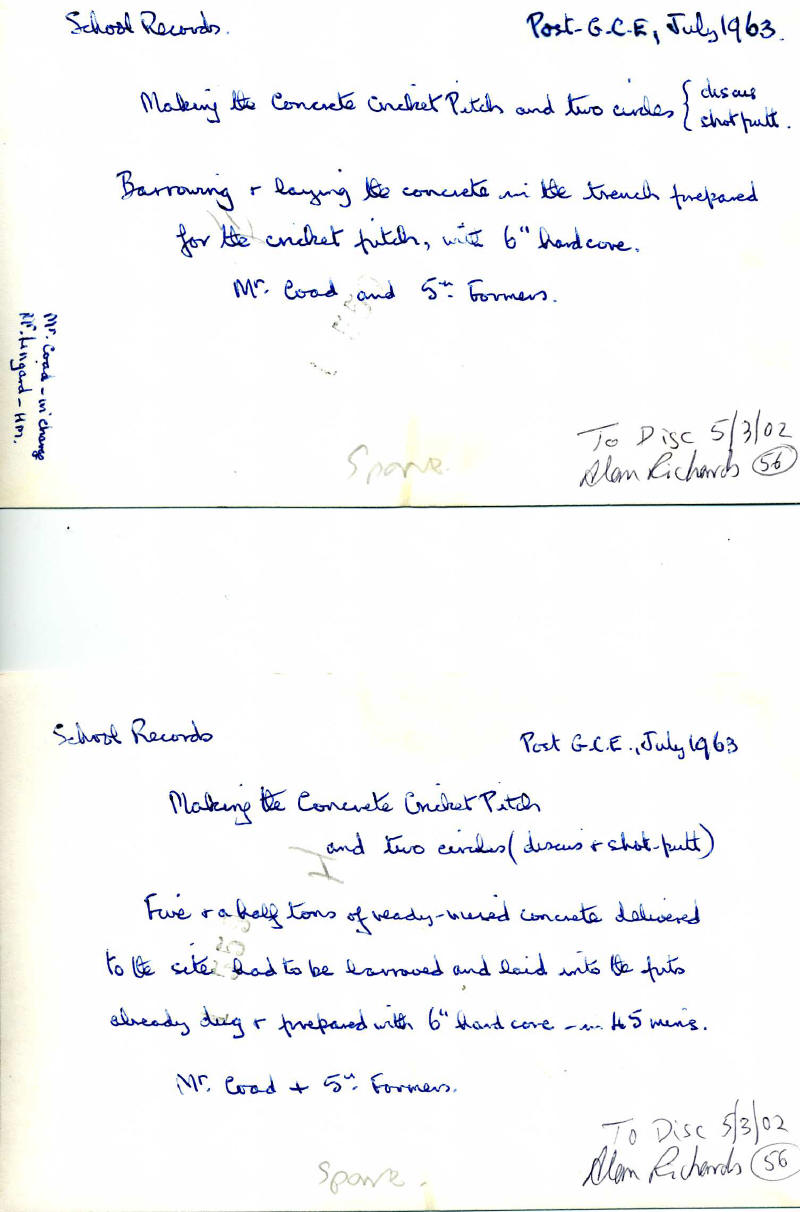 School Records.
Post-G.C.E, July 1963.
Making the Concrete Cricket Pitch and two circles { discus
shot putt.
Barrowing + laying the concrete in the trench prepared
for the cricket pitch, with 6" hardcore.
Mr. Coad and 5th Formers.
Mr. Coad - in charge
Mr. Lingard - HM.
Spare.
To Disc 5/3/02
Alan Richards 56
School Records
Post G.C.E., July 1963
Making the Concrete Cricket Pitch
and two circles (discus + shot-putt)
Five + a half tons of ready-mixed concrete delivered
to the site had to be barrowed and laid into the pits
already dug + prepared with 6" hard core - in 45 mins.
Mr. Coad + 5th Formers.
Spare.
To Disc 5/3/02
Alan Richards 56